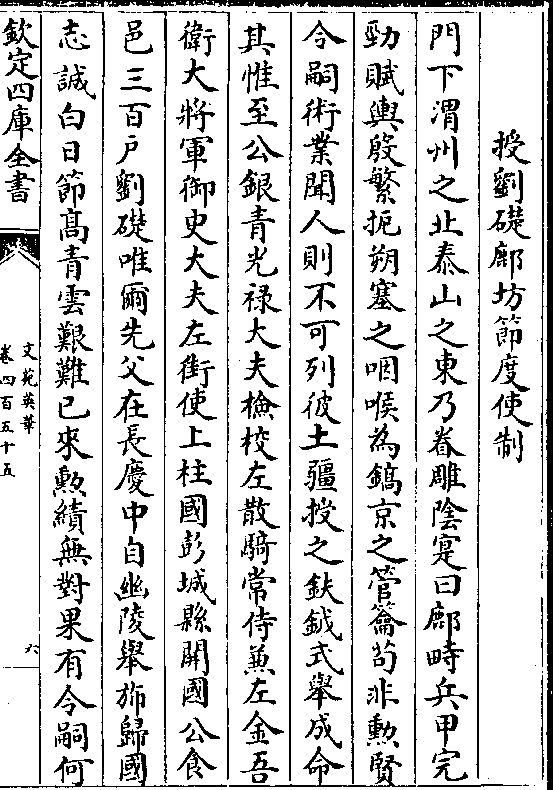 授劉礎鄜坊節度使制
門下渭州之北泰山之東乃眷雕陰寔曰鄜畤兵甲完
勁賦輿殷繁扼朔塞之咽喉為鎬京之管籥苟非勲賢
令嗣術業聞人則不可列彼土疆授之鈇鉞式舉成命
其惟至公銀青光禄大夫檢校左散騎常侍兼左金吾
衛大將軍御史大夫左街使上柱國彭城縣開國公食
邑三百戸劉礎唯爾先父在長慶中自幽陵舉斾歸國
志誠白日節髙青雲艱難已來勲績無對果有令嗣何
欽定四庫全書
文苑英華
卷四百五十五
六